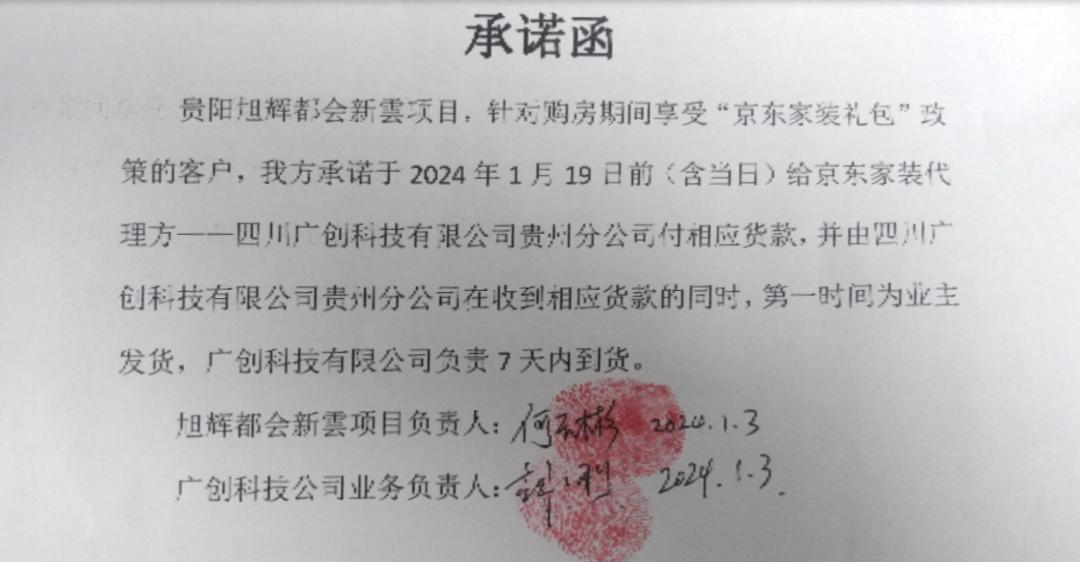 承诺函
贵阳旭辉都会新雲项目，针对购房期间享受“京东家装礼包”政
策的客户，我方承诺于 2024 年 1 月 19 日前（含当日）给京东家装代
理方——四川广创科技有限公司贵州分公司付相应货款，并由四川广
创科技有限公司贵州分公司在收到相应货款的同时，第一时间为业主
发货，广创科技有限公司负责 7 天内到货。
旭辉都会新雲项目负责人：何 彬 2024.1.3
广创科技公司业务负责人： 2024.1.3.